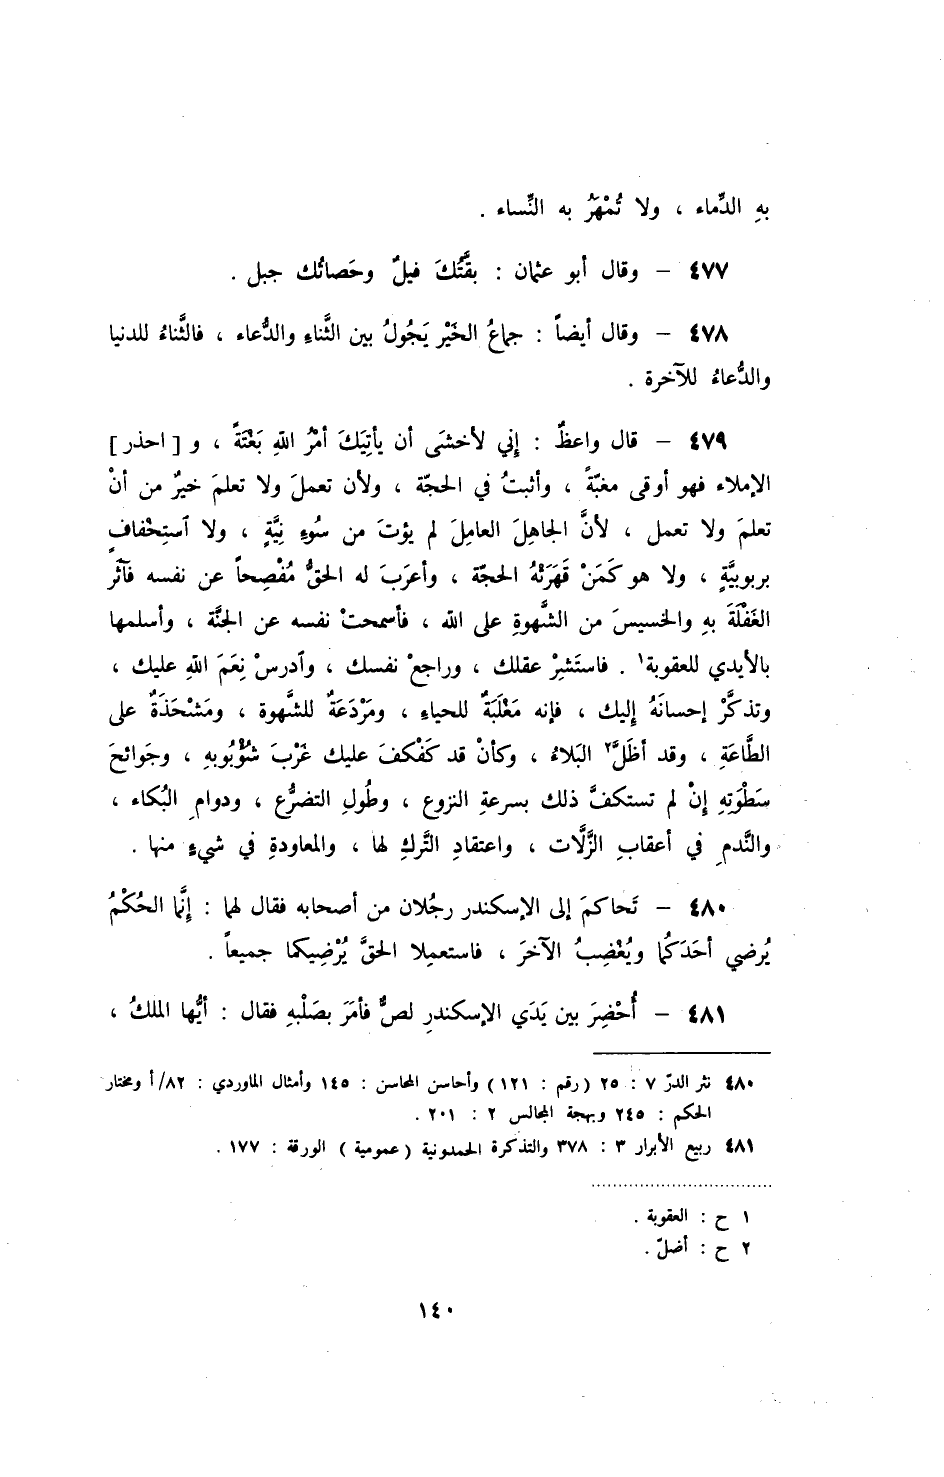 بهِ الدِّماء ، ولا تُمْهَرُ به النِّساء .
٤٧٧ – وقال أبو عثمان : بقَّتُكَ فيلٌ وحَصاتُك جبل .
٤٧٨ – وقال أيضاً : جماعُ الخَيْر يَجُولُ بين الثَّناءِ والدُّعاء ، فالثَّناءُ للدنيا
والدُّعاءُ للآخرة .
٤٧٩ – قال واعظٌ : إني لأخشَى أن يأتِيَكَ أمْرُ اللهِ بَغْتَةً ، و [ احذر ]
الإملاء فهو أوقى مغبّةً ، وأثبتُ في الحجّة ، ولأن تعملَ ولا تعلمَ خيرٌ من أنْ
تعلمَ ولا تعمل ، لأنَّ الجاهِلَ العامِلَ لم يؤتَ من سُوءِ نِيَّةٍ ، ولا ٱستِخْفافٍ
بربوبيَّةٍ ، ولا هو كَمَنْ قَهَرَتْهُ الحجّة ، وأعرَبَ له الحقُّ مُفْصِحاً عن نفسه فآثَر
الغَفْلَةَ بهِ والخسيسَ من الشَّهوةِ على الله ، فأسمحتْ نفسه عن الجنَّة ، وأسلمها
بالأيدي للعقوبة١ . فاستَشِرْ عقلك ، وراجعْ نفسك ، وٱدرسْ نِعَمَ اللهِ عليك ،
وتذكَّرْ إحسانَهُ إليك ، فإنه مَغْلَبَةٌ للحياءِ ، ومَرْدَعَةٌ للشَّهوة ، ومَشْحَذَةٌ على
الطَّاعَةِ ، وقد أظَلَّ٢ البَلاءُ ، وكأنْ قد كَفْكفَ عليك غَرْبَ شُؤْبُوبهِ ، وجَوائحَ
سَطْوَتِهِ إنْ لم تستكفَّ ذلك بسرعةِ النزوع ، وطُولِ التضرُّع ، ودوامِ البُكاء ،
والنَّدمِ في أعقابِ الزَّلَّات ، واعتقادِ التَّركِ لها ، والمعاودةِ في شيءٍ منها .
٤٨٠ – تَحاكمَ إلى الإسكندر رجُلان من أصحابه فقال لهما : إنَّما الحُكْمُ
يُرضي أحَدَكُما ويُغْضِبُ الآخرَ ، فاستعمِلا الحقَّ يُرْضِيكما جميعاً .
٤٨١ – أُحْضِرَ بين يَدَي الإسكندرِ لصٌّ فأمَرَ بصَلْبهِ فقال : أيُّها الملكُ ،
٤٨٠ نثر الدرّ ٧ : ٢٥ (رقم : ١٢١) وأحاسن المحاسن : ١٤٥ وأمثال الماوردي : ٨٢/أ ومختار
الحكم : ٢٤٥ وبهجة المجالس ٢ : ٢٠١ .
٤٨١ ربيع الأبرار ٣ : ٣٧٨ والتذكرة الحمدونية (عمومية) الورقة : ١٧٧ .
١ ح : العقوبة .
٢ ح : أضلّ .
١٤٠